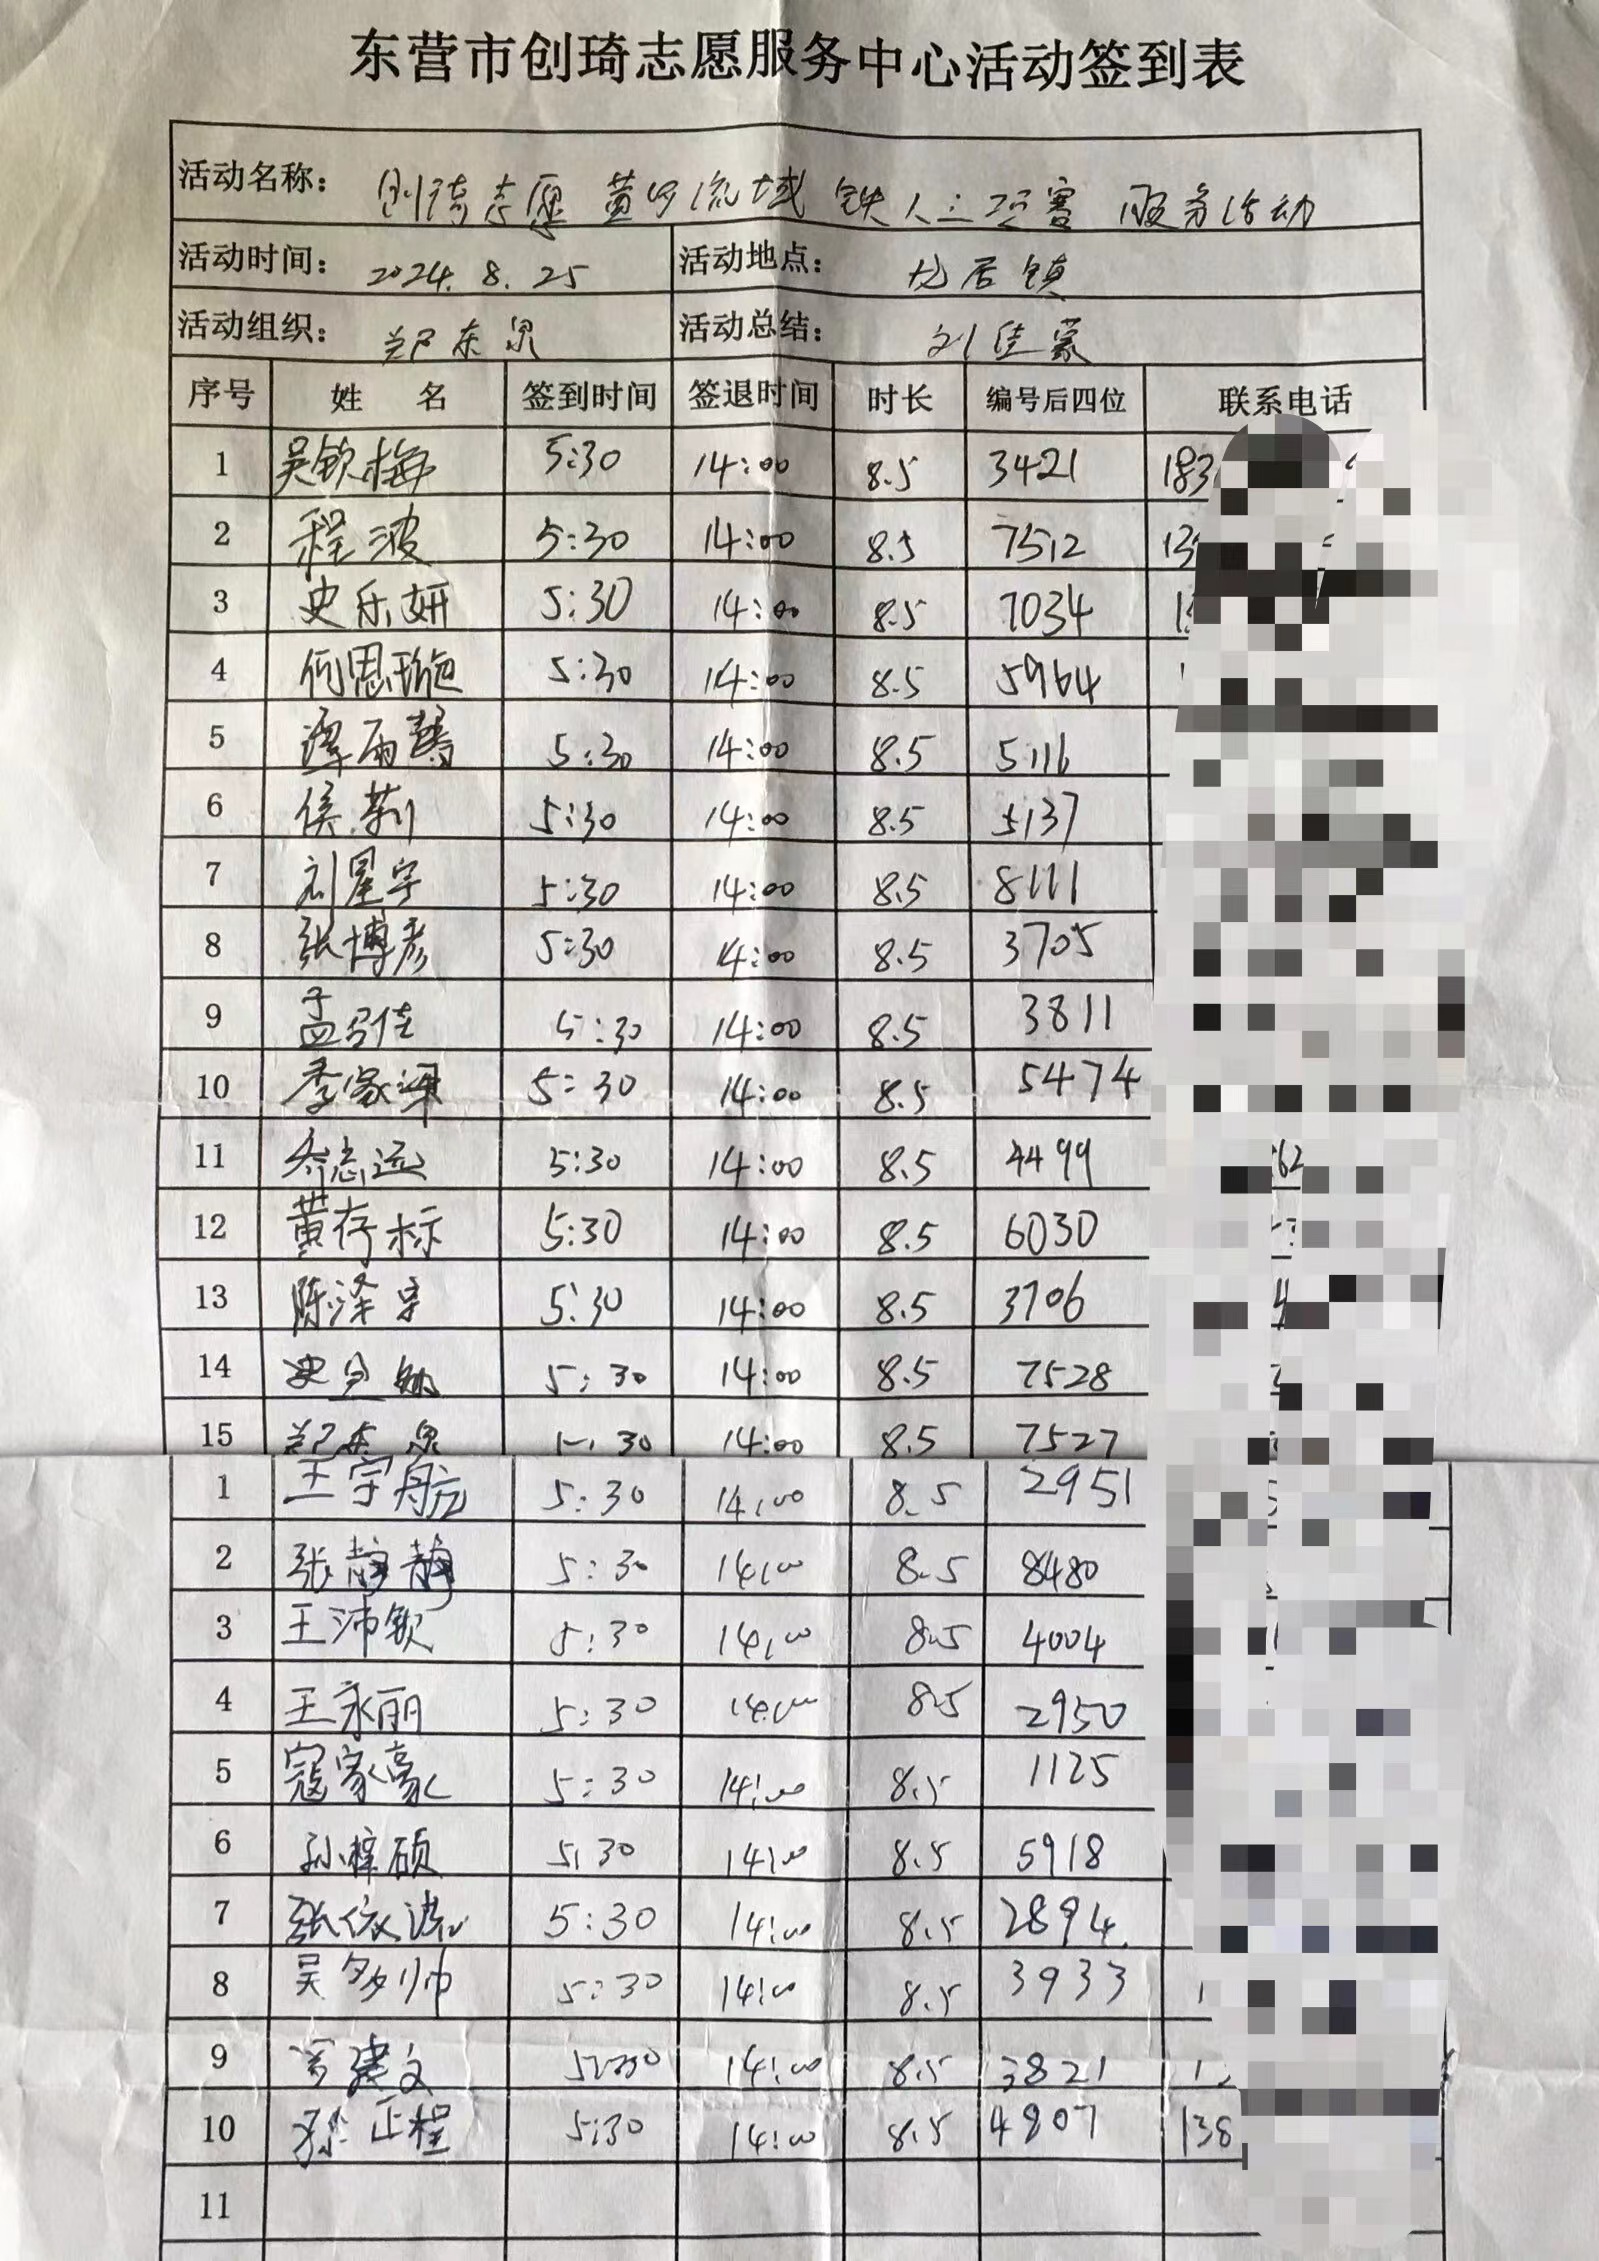 东营市创琦志愿服务中心活动签到表
活动名称： 创琦志愿 黄河流域 铁人三项赛 服务活动
活动时间： 2024.8.25 活动地点： 龙居镇
活动组织： 郑东泉 活动总结： 刘佳蒙
序号 姓 名 签到时间 签退时间 时长 编号后四位 联系电话
1 吴钦梅 5:30 14:00 8.5 3421 183
2 程波 5:30 14:00 8.5 7512 13
3 史乐妍 5:30 14:00 8.5 7034 1
4 何思璇 5:30 14:00 8.5 5964
5 谭雨馨 5:30 14:00 8.5 5116
6 侯莉 5:30 14:00 8.5 5137
7 刘星宇 5:30 14:00 8.5 8111
8 张博彦 5:30 14:00 8.5 3705
9 孟佳 5:30 14:00 8.5 3811
10 李家 5:30 14:00 8.5 5474
11 乔志远 5:30 14:00 8.5 4499 62
12 黄存标 5:30 14:00 8.5 6030
13 陈泽宇 5:30 14:00 8.5 3706
14 史 5:30 14:00 8.5 7528
15 郑东泉 30 14:00 8.5 7527
1 王宇航 5:30 14:00 8.5 2951
2 张静静 5:30 14:00 8.5 8480
3 王沛钦 5:30 14:00 8.5 4004
4 王永丽 5:30 14:00 8.5 2950
5 寇家豪 5:30 14:00 8.5 1125
6 孙梓硕 5:30 14:00 8.5 5918
7 张依 5:30 14:00 8.5 2894
8 吴多帅 5:30 14:00 8.5 3933
9 建文 5:30 14:00 8.5 3821 1
10 孙正程 5:30 14:00 8.5 4807 138
11